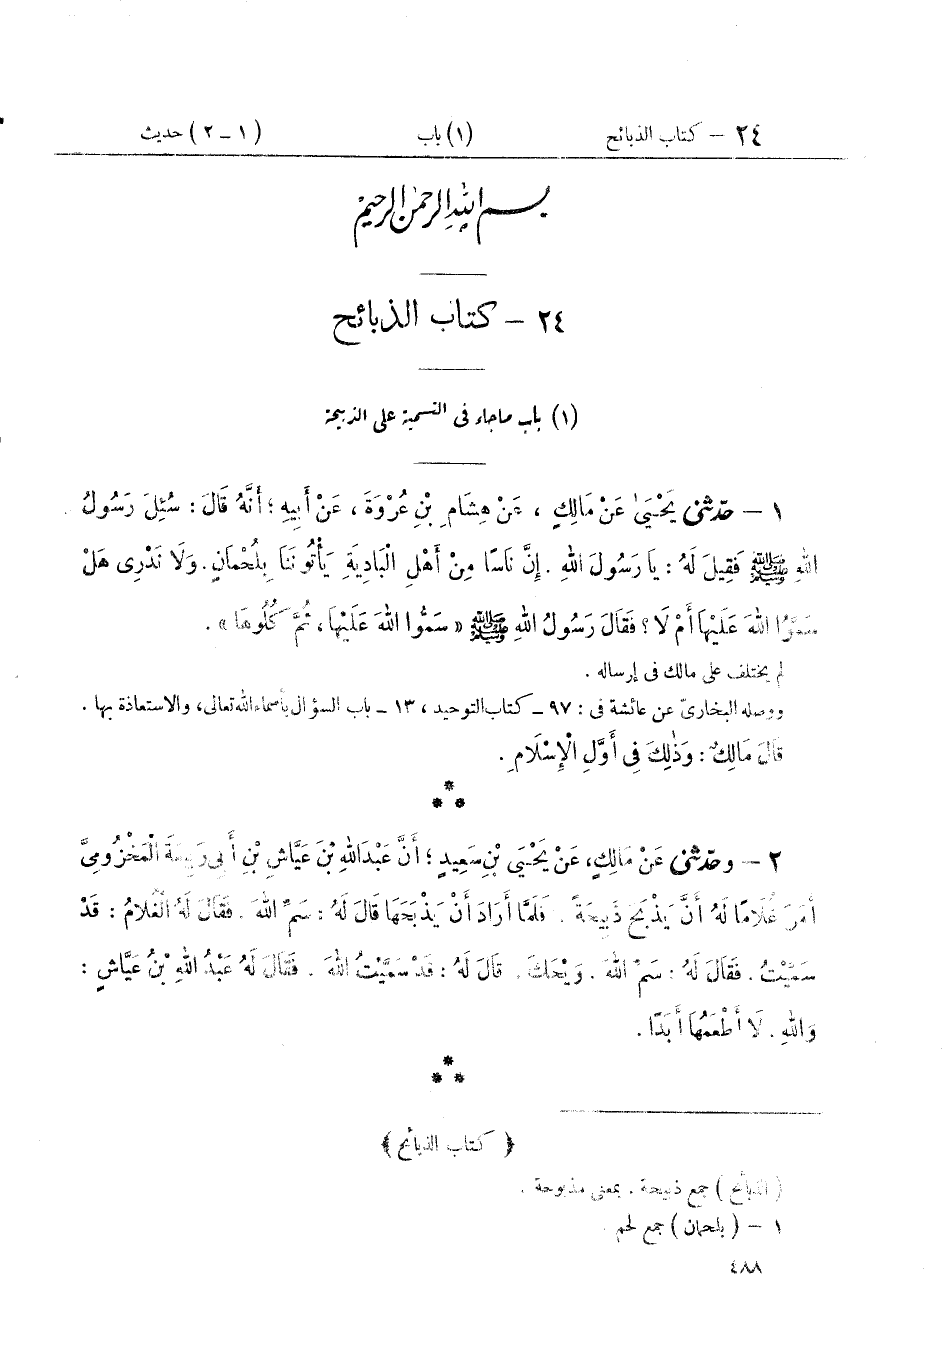 ٢٤ – كتاب الذبائح (١) باب (١ – ٢) حديث
بسم الله الرحمن الرحيم
٢٤ – كتاب الذبائح
(١) باب ماجاء فى التسمية على الذبيحة
١ – حَدَّثَنِى يَحْيَىٰ عَنْ مَالِكٍ ، عَنْ هِشَامِ بْنِ عُرْوَةَ ، عَنْ أَبِيهِ ؛ أَنَّهُ قَالَ : سُئِلَ رَسُولُ
اللهِ ﷺ فَقِيلَ لَهُ : يَا رَسُولَ اللهِ . إِنَّ نَاسًا مِنْ أَهْلِ الْبَادِيَةِ يَأْتُونَنَا بِلُحْمَانٍ . وَلَا نَدْرِى هَلْ
سَمَّوُا اللهَ عَلَيْهَا أَمْ لَا ؟ فَقَالَ رَسُولُ اللهِ ﷺ « سَمُّوا اللهَ عَلَيْهَا ، ثُمَّ كُلُوهَا » .
لم يختلف على مالك فى إرساله .
ووصله البخارىّ عن عائشة فى : ٩٧ – كتاب التوحيد ، ١٣ – باب السؤال بأسماء الله تعالى، والاستعاذة بها .
قَالَ مَالِكٌ : وَذٰلِكَ فِى أَوَّلِ الْإِسْلَامِ .
٢ – وحَدَّثَنِى عَنْ مَالِكٍ، عَنْ يَحْيَى بْنِ سَعِيدٍ ؛ أَنَّ عَبْدَ اللهِ بْنَ عَيَّاشِ بْنِ أَبِى رَبِيعَةَ الْمَخْزُومِىَّ
أَمَرَ غُلَامًا لَهُ أَنْ يَذْبَحَ ذَبِيحَةً . فَلَمَّا أَرَادَ أَنْ يَذْبَحَهَا قَالَ لَهُ : سَمِّ اللهَ . فَقَالَ لَهُ الْغُلَامُ : قَدْ
سَمَّيْتُ . فَقَالَ لَهُ : سَمِّ اللهَ . وَيْحَكَ . قَالَ لَهُ : قَدْ سَمَّيْتُ اللهَ . فَقَالَ لَهُ عَبْدُ اللهِ بْنُ عَيَّاشٍ :
وَاللهِ . لَا أَطْعَمُهَا أَبَدًا .
﴿ كتاب الذبائح ﴾
( الذبائح ) جمع ذبيحة . بمعنى مذبوحة .
١ – ( بلحمان ) جمع لحم .
٤٨٨